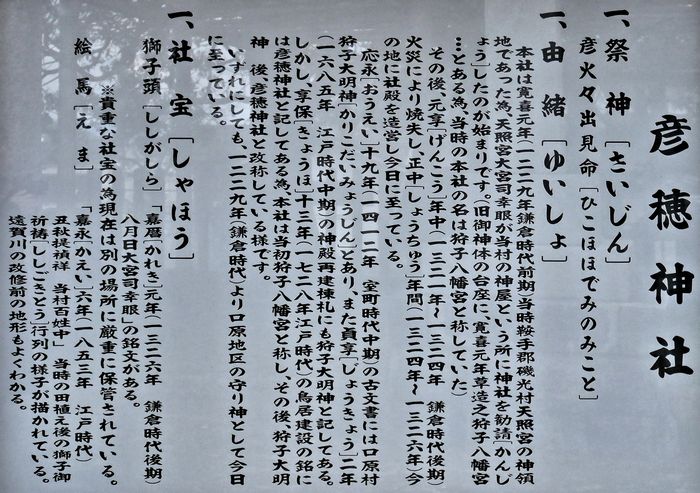 彦穂神社
一、祭神［さいじん］
彦火々出見命［ひこほほでみのみこと］
一、由緒［ゆいしょ］
本社は寛喜元年（一二二九年鎌倉時代前期）当時鞍手郡磯光村天照宮の神領
地であった為、天照宮大宮司幸眼が当村の神屋という所に神社を勧請［かんじ
ょう］したのが始まりです。旧御神体の台座に、寛喜元年草造之狩子八幡宮
…とある為、当時の本社の名は狩子八幡宮と称していた）
その後、元享［げんこう］年中（一三二一年～一三二四年　鎌倉時代後期）
火災により焼失し、正中［しょうちゅう］年間（一三二四年～一三二六年）今
の地に社殿を造営し今日に至っている。
応永［おうえい］十九年（一四一二年　室町時代中期）の古文書には口原村
狩子大明神［かりこだいみょうじん］とあり、また貞享［じょうきょう］二年
（一六八五年　江戸時代中期）の神殿再建棟札にも狩子大明神と記してある。
しかし、享保［きょうほ］十三年（一七二八年江戸時代）の鳥居建設の銘に
は彦穂神社と記してある為、本社は当初狩子八幡宮と称し、その後、狩子大明
神　後、彦穂神社と改称している様です。
いずれにしても、一二二九年（鎌倉時代）より口原地区の守り神として今日
に至っている。
一、社宝［しゃほう］
※貴重な社宝の為現在は別の場所に厳重に保管されている。
獅子頭［ししがしら］「嘉暦［かれき］元年（一三二六年　鎌倉時代後期）
八月日大宮司幸眼」の銘文がある。
絵馬［えま］「嘉永［かえい］六年（一八五三年　江戸時代）
丑秋禔禎祥　当村百姓中」当時の田植え後の獅子御
祈祷［ししごきとう］行列の様子が描かれている。
遠賀川の改修前の地形もよくわかる。